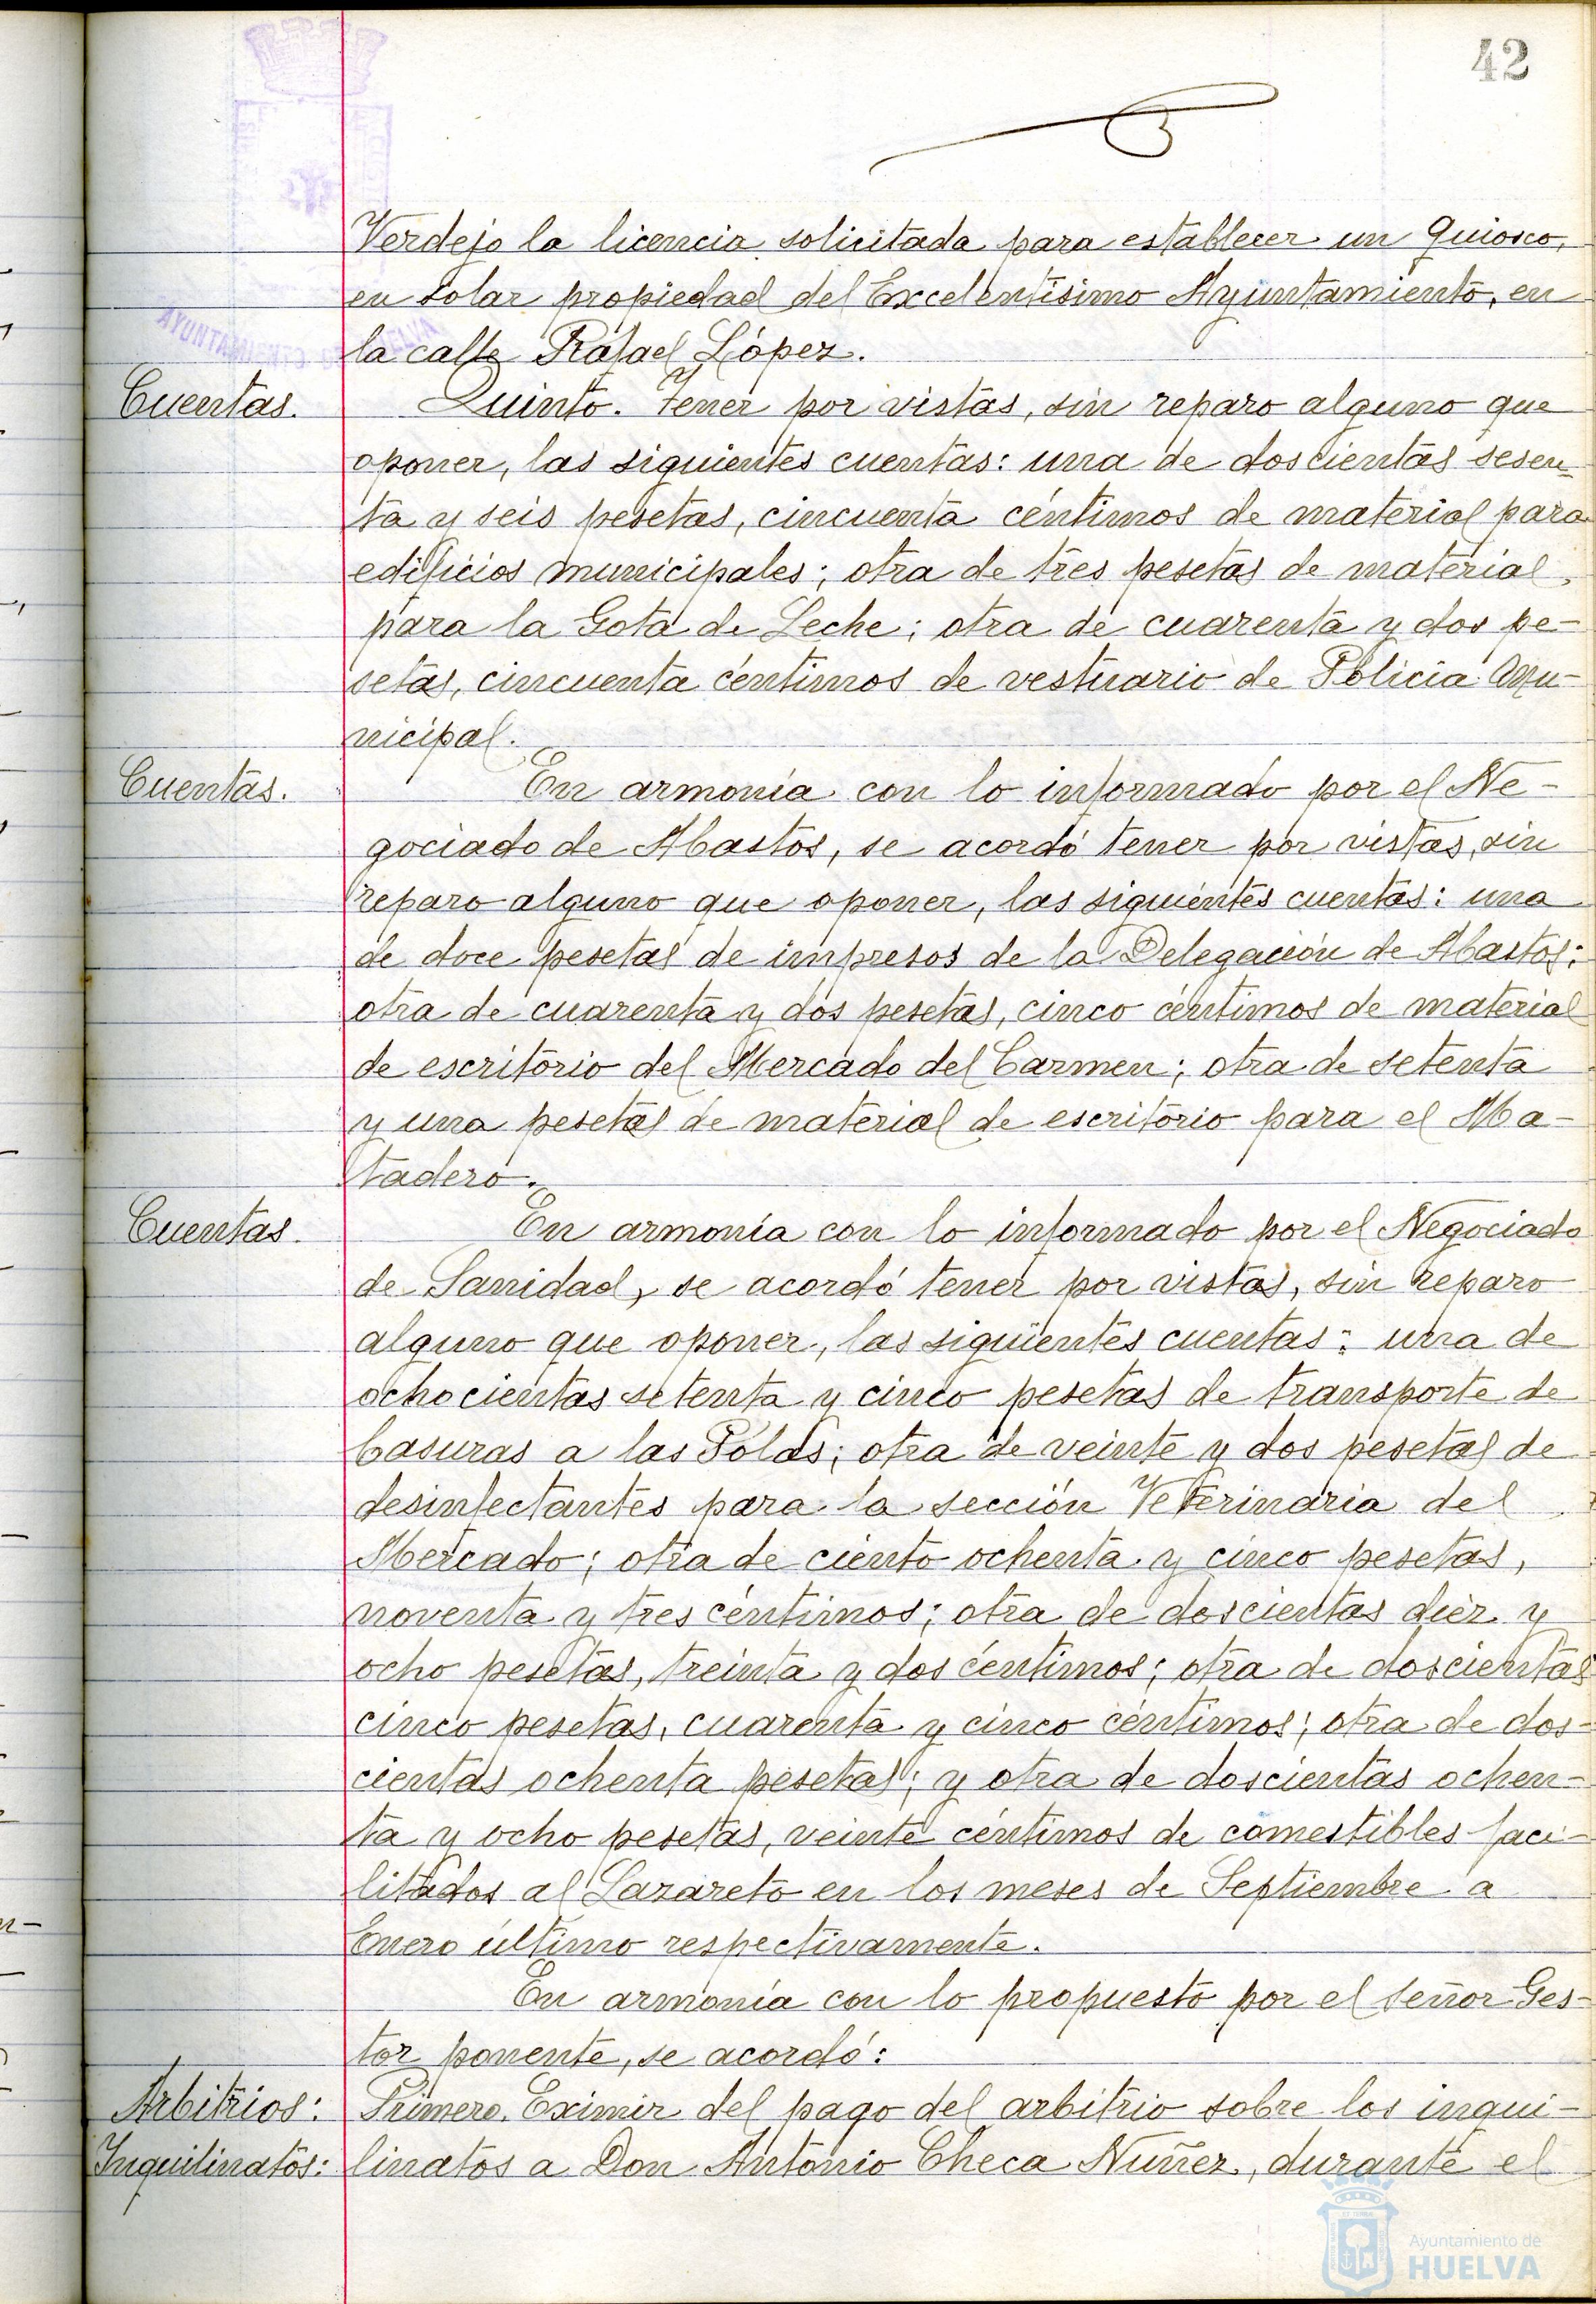 42
Verdejo la licencia solicitada para establecer un Quiosco,
en solar propiedad del Excelentísimo Ayuntamiento, en
la calle Rafael López.
AYUNTAMIENTO DE HUELVA
Cuentas.
Quinto. Tener por vistas, sin reparo alguno que
oponer, las siguientes cuentas: una de doscientas sesen-
ta y seis pesetas, cincuenta céntimos de material para
edificios municipales; otra de tres pesetas de material
para la Gota de Leche; otra de cuarenta y dos pe-
setas, cincuenta céntimos de vestuario de Policía Mu-
nicipal.
Cuentas.
En armonía con lo informado por el Ne-
gociado de Abastos, se acordó tener por vistas, sin
reparo alguno que oponer, las siguientes cuentas: una
de doce pesetas de impresos de la Delegación de Abastos;
otra de cuarenta y dos pesetas, cinco céntimos de material
de escritorio del Mercado del Carmen; otra de setenta
y una pesetas de material de escritorio para el Ma-
tadero.
Cuentas.
En armonía con lo informado por el Negociado
de Sanidad, se acordó tener por vistas, sin reparo
alguno que oponer, las siguientes cuentas: una de
ochocientas setenta y cinco pesetas de transporte de
basuras a las Polas; otra de veinte y dos pesetas de
desinfectantes para la sección Veterinaria del
Mercado; otra de ciento ochenta y cinco pesetas,
noventa y tres céntimos; otra de doscientas diez y
ocho pesetas, treinta y dos céntimos; otra de doscientas
cinco pesetas, cuarenta y cinco céntimos; otra de dos-
cientas ochenta pesetas; y otra de doscientas ochen-
ta y ocho pesetas, veinte céntimos de comestibles faci-
litados al Lazareto en los meses de Septiembre a
Enero último respectivamente.
En armonía con lo propuesto por el señor Ges-
tor ponente, se acordó:
Arbitrios:
Primero. Eximir del pago del arbitrio sobre los inqui-
Inquilinatos:
linatos a Don Antonio Checa Nuñez, durante el
Ayuntamiento de
HUELVA